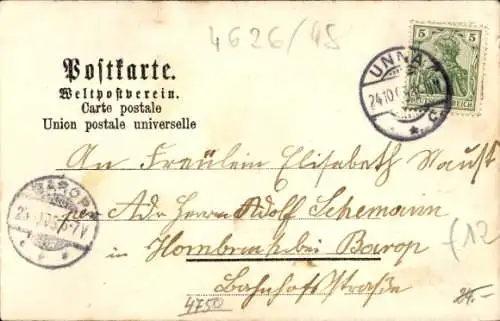 4626/45
Postkarte.
Weltpostverein.
Carte postale
Union postale universelle
5 5
DEUTSCHES REICH
UNNA
24.10.
BAROP
An Fräulein Elisabeth
per Adr Herrn Adolf Schemann
in Hombruch bei Barop
Bahnhofsstraße
f12
4750
24.-